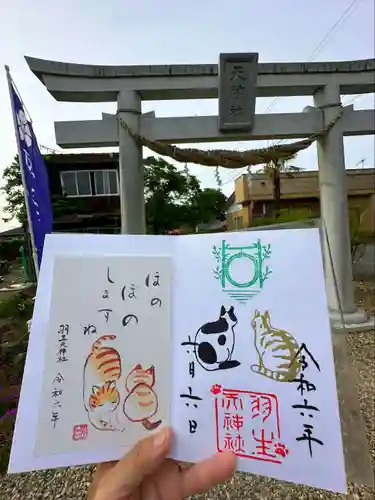 天神社
ほの
ぼの
しますね
羽生天神社 令和六年
令和六年
六月六日
羽生
天神社